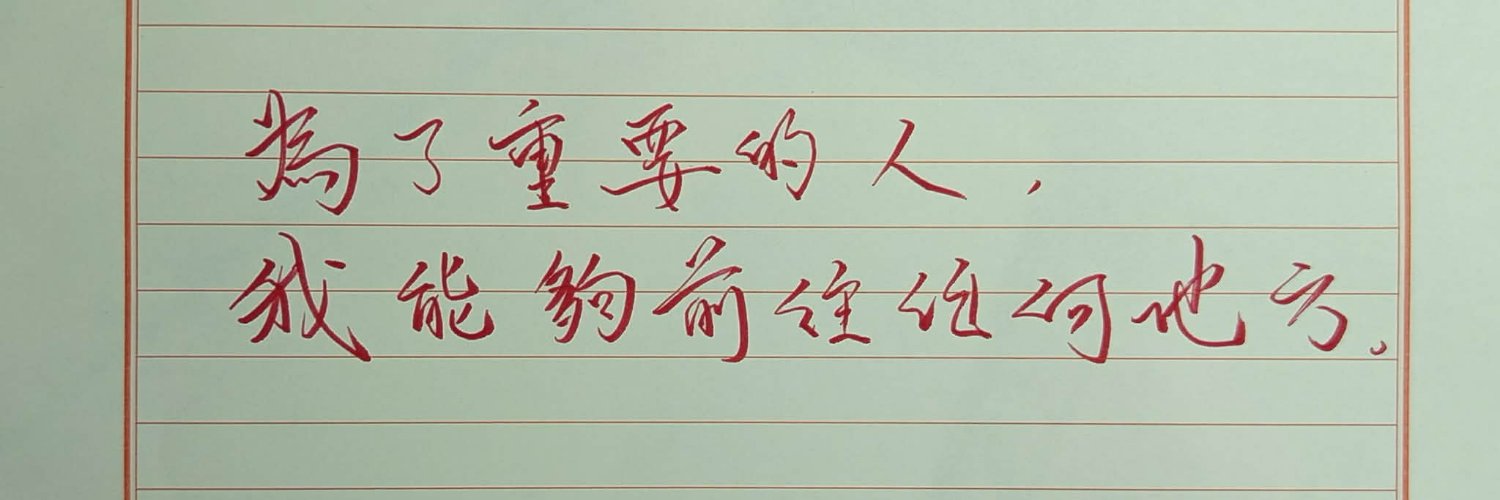 為了重要的人，
我能夠前往任何地方。